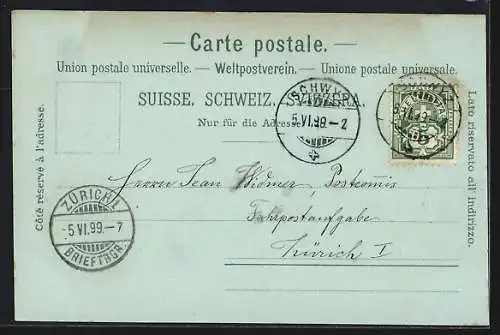 — Carte postale. —
Union postale universelle. — Weltpostverein. — Unione postale universale.
SUISSE. SCHWEIZ. SVIZZERA.
Nur für die Adresse.
SCHWYZ
5.VI.99.-2
Côté réservé à l'adresse.
Lato riservato all' indirizzo.
ZÜRICH 1
-5.VI.99.-7
BRIEFTRGR.
Herrn Jean Widmer, Postcomis
Fahrpostaufgabe
Zürich I